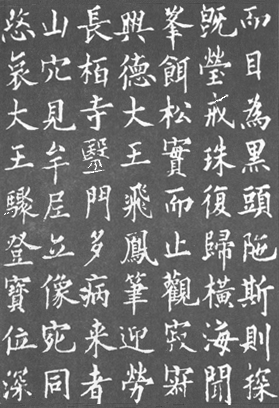 而目為黑頭陁斯則探
既瑩戒珠復歸橫海聞
峯餌松實而止觀寂寂
興德大王飛鳳筆迎勞
長栢寺毉門多病来者
山穴見牟尼立像宛同
慜哀大王驟登寶位深